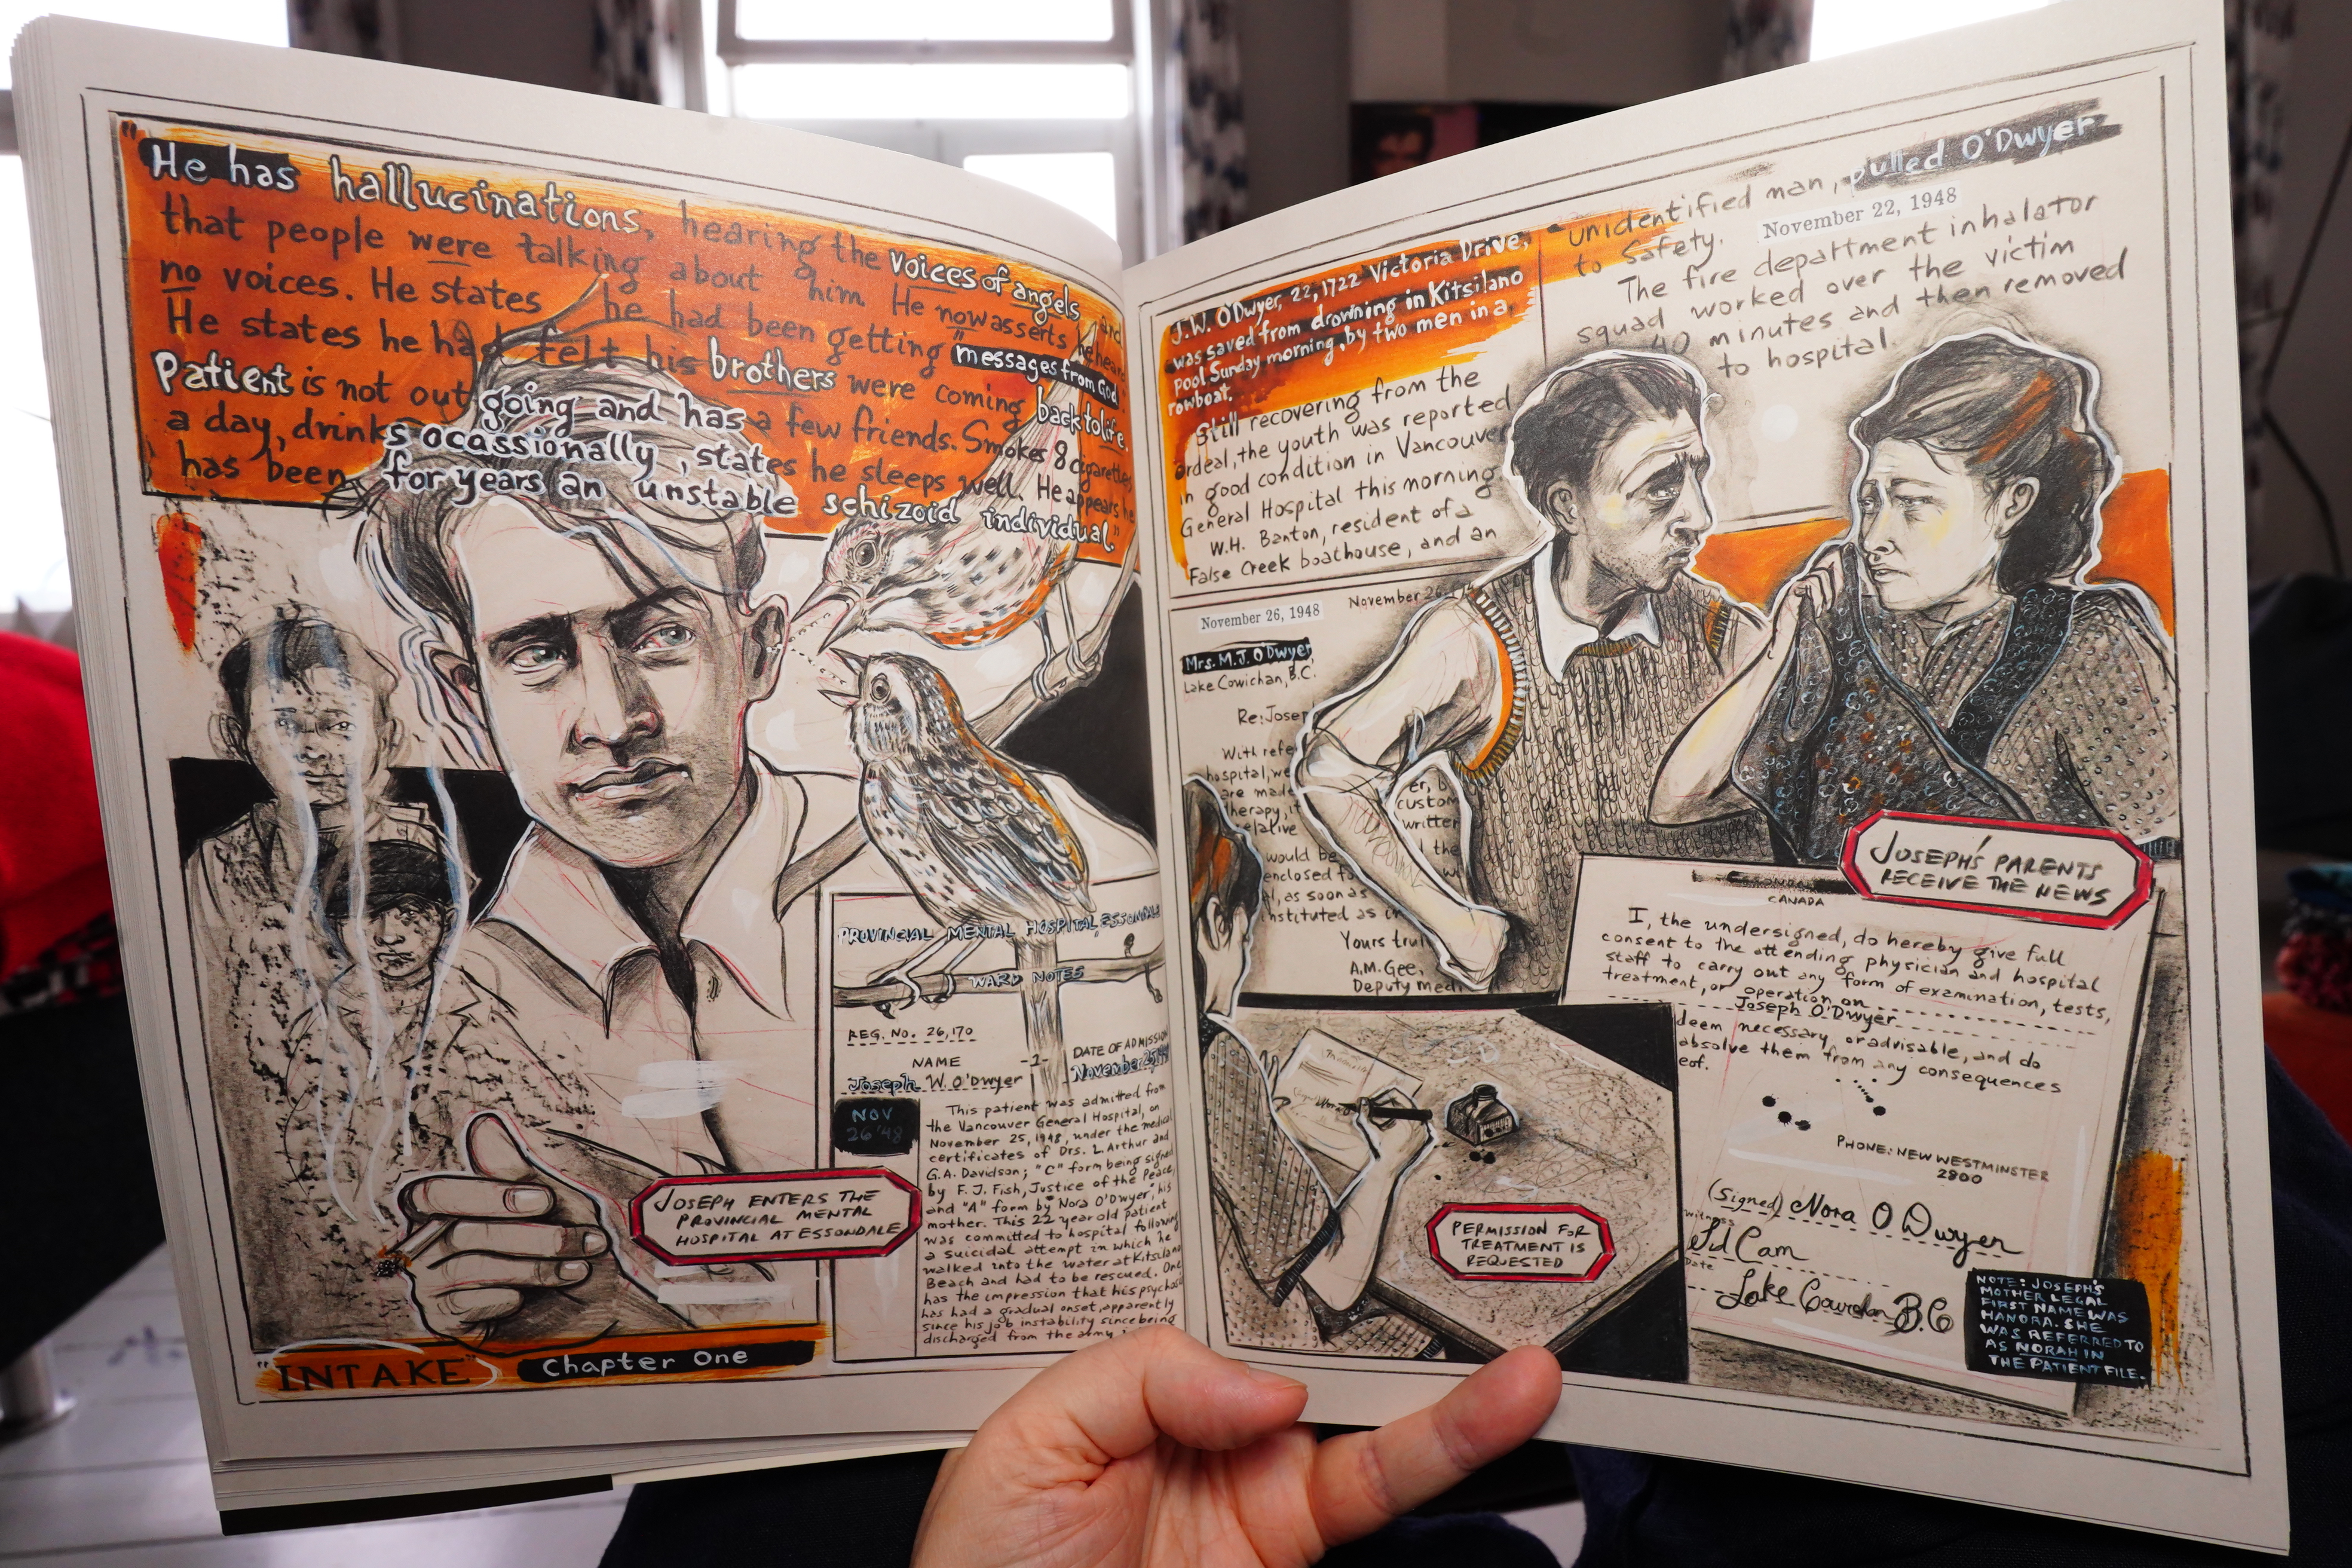 "He has hallucinations, hearing the voices of angels and
that people were talking about him. He now asserts he heard
no voices. He states he had been getting "messages from God".
He states he had felt his brothers were coming back to life.
Patient is not out going and has a few friends. Smokes 8 cigarettes
a day, drinks ocassionally, states he sleeps well. He appears he
has been for years an unstable schizoid individual."
PROVINCIAL MENTAL HOSPITAL, ESSONDALE
WARD NOTES
REG. NO. 26,170
NAME -1- DATE OF ADMISSION
Joseph W. O'Dwyer November 25,
NOV
26 '48
This patient was admitted from
the Vancouver General Hospital, on
November 25, 1948, under the medical
certificates of Drs. L. Arthur and
G.A. Davidson; "C" form being signed
by F. J. Fish, Justice of the Peace,
and "A" form by Nora O'Dwyer, his
mother. This 22 year old patient
was committed to hospital following
a suicidal attempt in which he
walked into the water at Kitsilano
Beach and had to be rescued. One
has the impression that his psychosis
has had a gradual onset, apparently
since his job instability since being
discharged from the army
JOSEPH ENTERS THE
PROVINCIAL MENTAL
HOSPITAL AT ESSONDALE
"INTAKE" Chapter One
J.W. O'Dwyer, 22, 1722 Victoria Drive,
was saved from drowning in Kitsilano
pool Sunday morning, by two men in a
rowboat.
Still recovering from the
ordeal, the youth was reported
in good condition in Vancouver
General Hospital this morning
W.H. Banton, resident of a
False Creek boathouse, and an
unidentified man, pulled O'Dwyer
to safety. November 22, 1948
The fire department inhalator
squad worked over the victim
40 minutes and then removed
to hospital.
November 26, 1948 November 26
Mrs. M.J. O'Dwyer
Lake Cowichan, B.C.
Re: Josep
With refe
hospital, we
are made
herapy, it
relative
would be
enclosed fo
al, as soon as
instituted as
er, b
custom
written
the
Yours trul
A.M. Gee,
Deputy medi
JOSEPH'S PARENTS
RECEIVE THE NEWS
CANADA
I, the undersigned, do hereby give full
consent to the attending physician and hospital
staff to carry out any form of examination, tests,
treatment, or operation on
Joseph O'Dwyer
deem necessary, or advisable, and do
absolve them from any consequences
eof.
PHONE: NEW WESTMINSTER
2800
(Signed) Nora O Dwyer
Witness
Cam
Date
Lake Cowichan B.C
PERMISSION FOR
TREATMENT IS
REQUESTED
NOTE: JOSEPH'S
MOTHER LEGAL
FIRST NAME WAS
HANORA. SHE
WAS REFERRED TO
AS NORAH IN
THE PATIENT FILE.